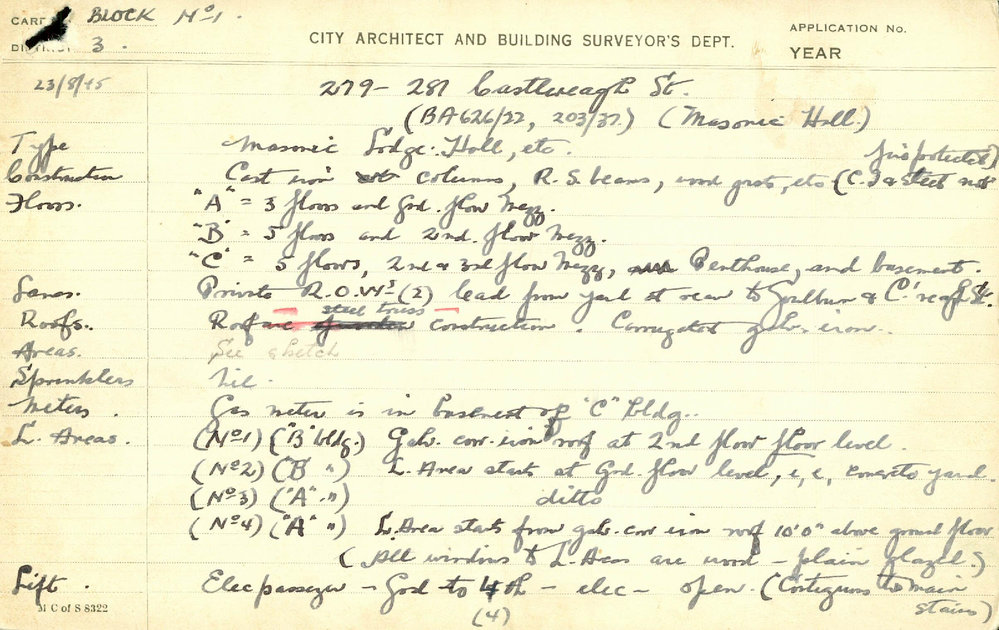 BLOCK No 1.
DISTRICT 3.
CITY ARCHITECT AND BUILDING SURVEYOR'S DEPT.
APPLICATION No.
YEAR
23/8/45
279 - 281 Castlereagh St.
(BA 626/22, 203/37.) (Masonic Hall.)
Type Masonic Lodge Hall, etc.
Construction Cast iron columns, R.S. beams, wood posts, etc (C.I & steel not fireprotected)
Floors. "A" = 3 floors and Grd. floor Mezz.
"B" = 5 floors and 2nd. floor Mezz.
"C" = 5 floors, 2nd & 3rd floor Mezz, Penthouse, and basement.
Lanes. Private R.O.W's (2) lead from yard at rear to Goulburn & C'reagh St.
steel truss
Roofs. Roof construction. Corrugated galv. iron.
Areas. See sketch
Sprinklers Nil.
Meters. Gas meter is in basement of "C" bldg.
L. Areas. (No 1) ("B" bldg.) Galv. corr. iron roof at 2nd floor floor level.
(No 2) ("B" ") L. Area starts at Grd. floor level, i.e, concrete yard.
(No 3) ("A" ") ditto
(No 4) ("A" ") L. Area starts from galv. cor iron roof 10'0" above ground floor
(All windows to L. Areas are wood - plain glazed.)
Lift. Elec passenger - Grd to 4th - elec - open. (Contiguous to main stairs)
(4)
M C of S 8322